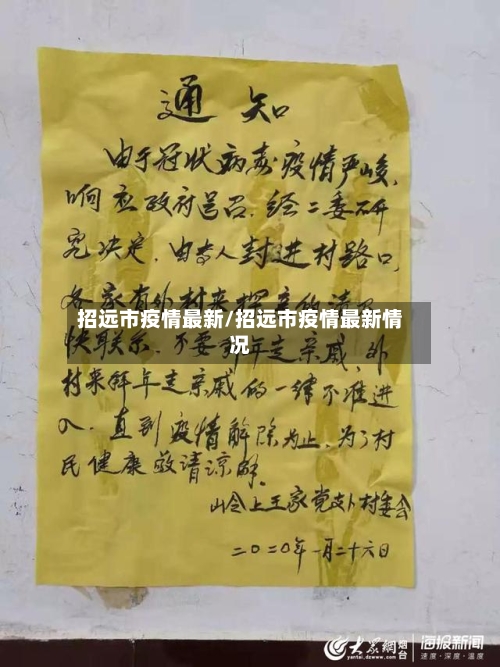 通知
由于冠状病毒疫情严峻,
响应政府号召.经二委研
究决定,由专人封进村路口,
各家有外村来探亲的请
招远市疫情最新/招远市疫情最新情
况
快联系.不要 年走亲戚,外
村来拜年走亲戚的一律不准进
入.直到疫情解除为止.为了村
民健康敬请谅解。
岭上王家党支卜村委会
二〇二〇年一月二十六日
大众网 烟台
yantai.dzwww.com
海报新闻
速度·深度·温度